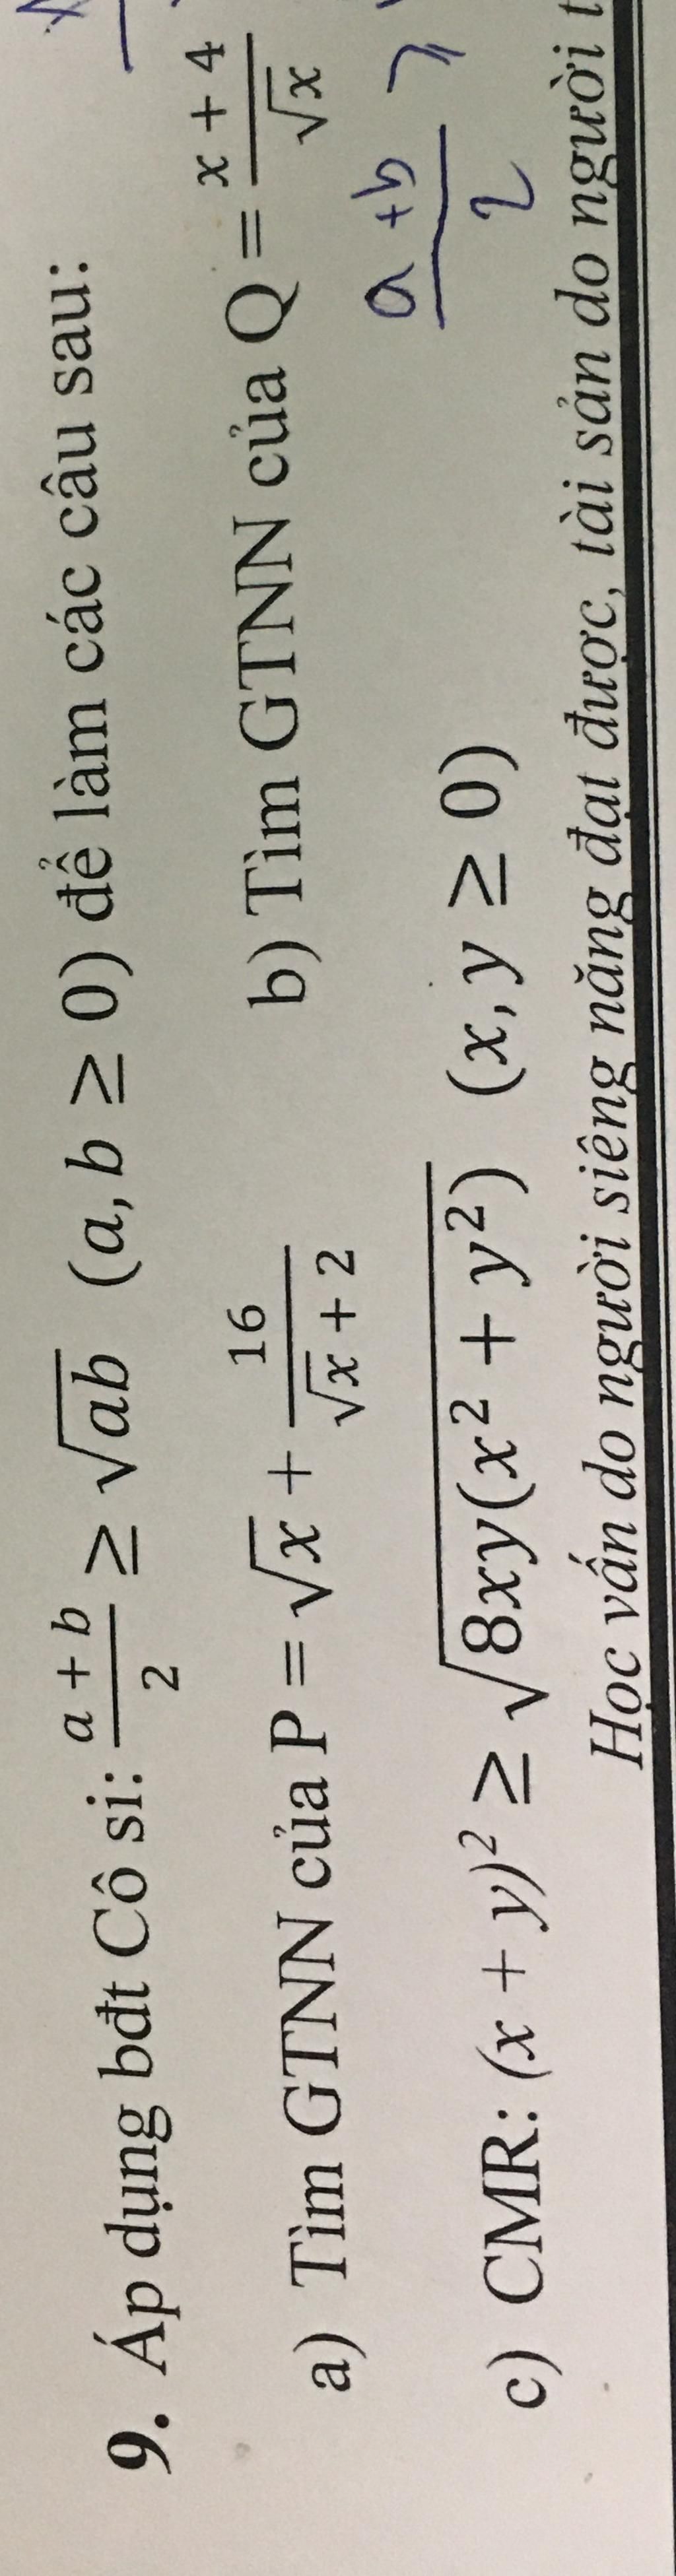 9. Áp dụng bđt Cô si: $\frac{a+b}{2} \geq \sqrt{ab}$ (a, b ≥ 0) để làm các câu sau:
a) Tìm GTNN của P = $\sqrt{x} + \frac{16}{\sqrt{x}+2}$ b) Tìm GTNN của Q = $\frac{x+4}{\sqrt{x}}$
$\frac{a+b}{2}$ ≥
c) CMR: (x + y)² ≥ $\sqrt{8xy(x^2+y^2)}$ (x, y ≥ 0)
Học vấn do người siêng năng đạt được, tài sản do người t